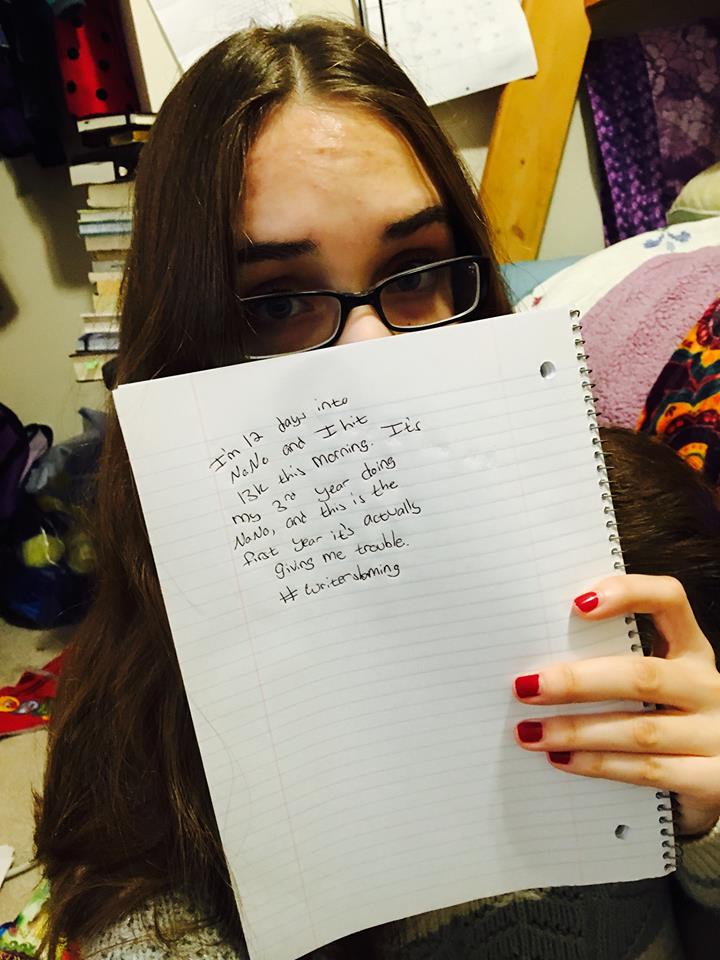 I'm 12 days into
NaNo and I hit
13k this morning. It's
my 3rd year doing
NaNo, and this is the
first year it's actually
giving me trouble.
#writershaming